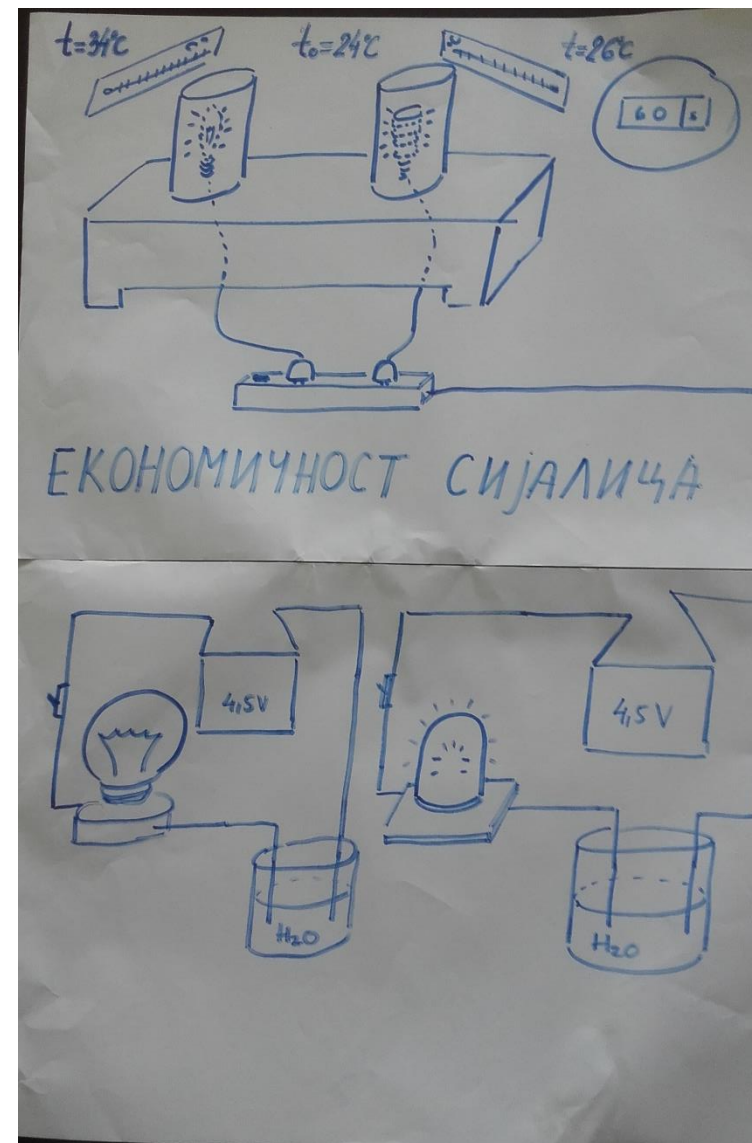 t=34°C t₀=24°C t=26°C
60 s
ЕКОНОМИЧНОСТ СИЈАЛИЦА
4,5V 4,5V
H₂O H₂O